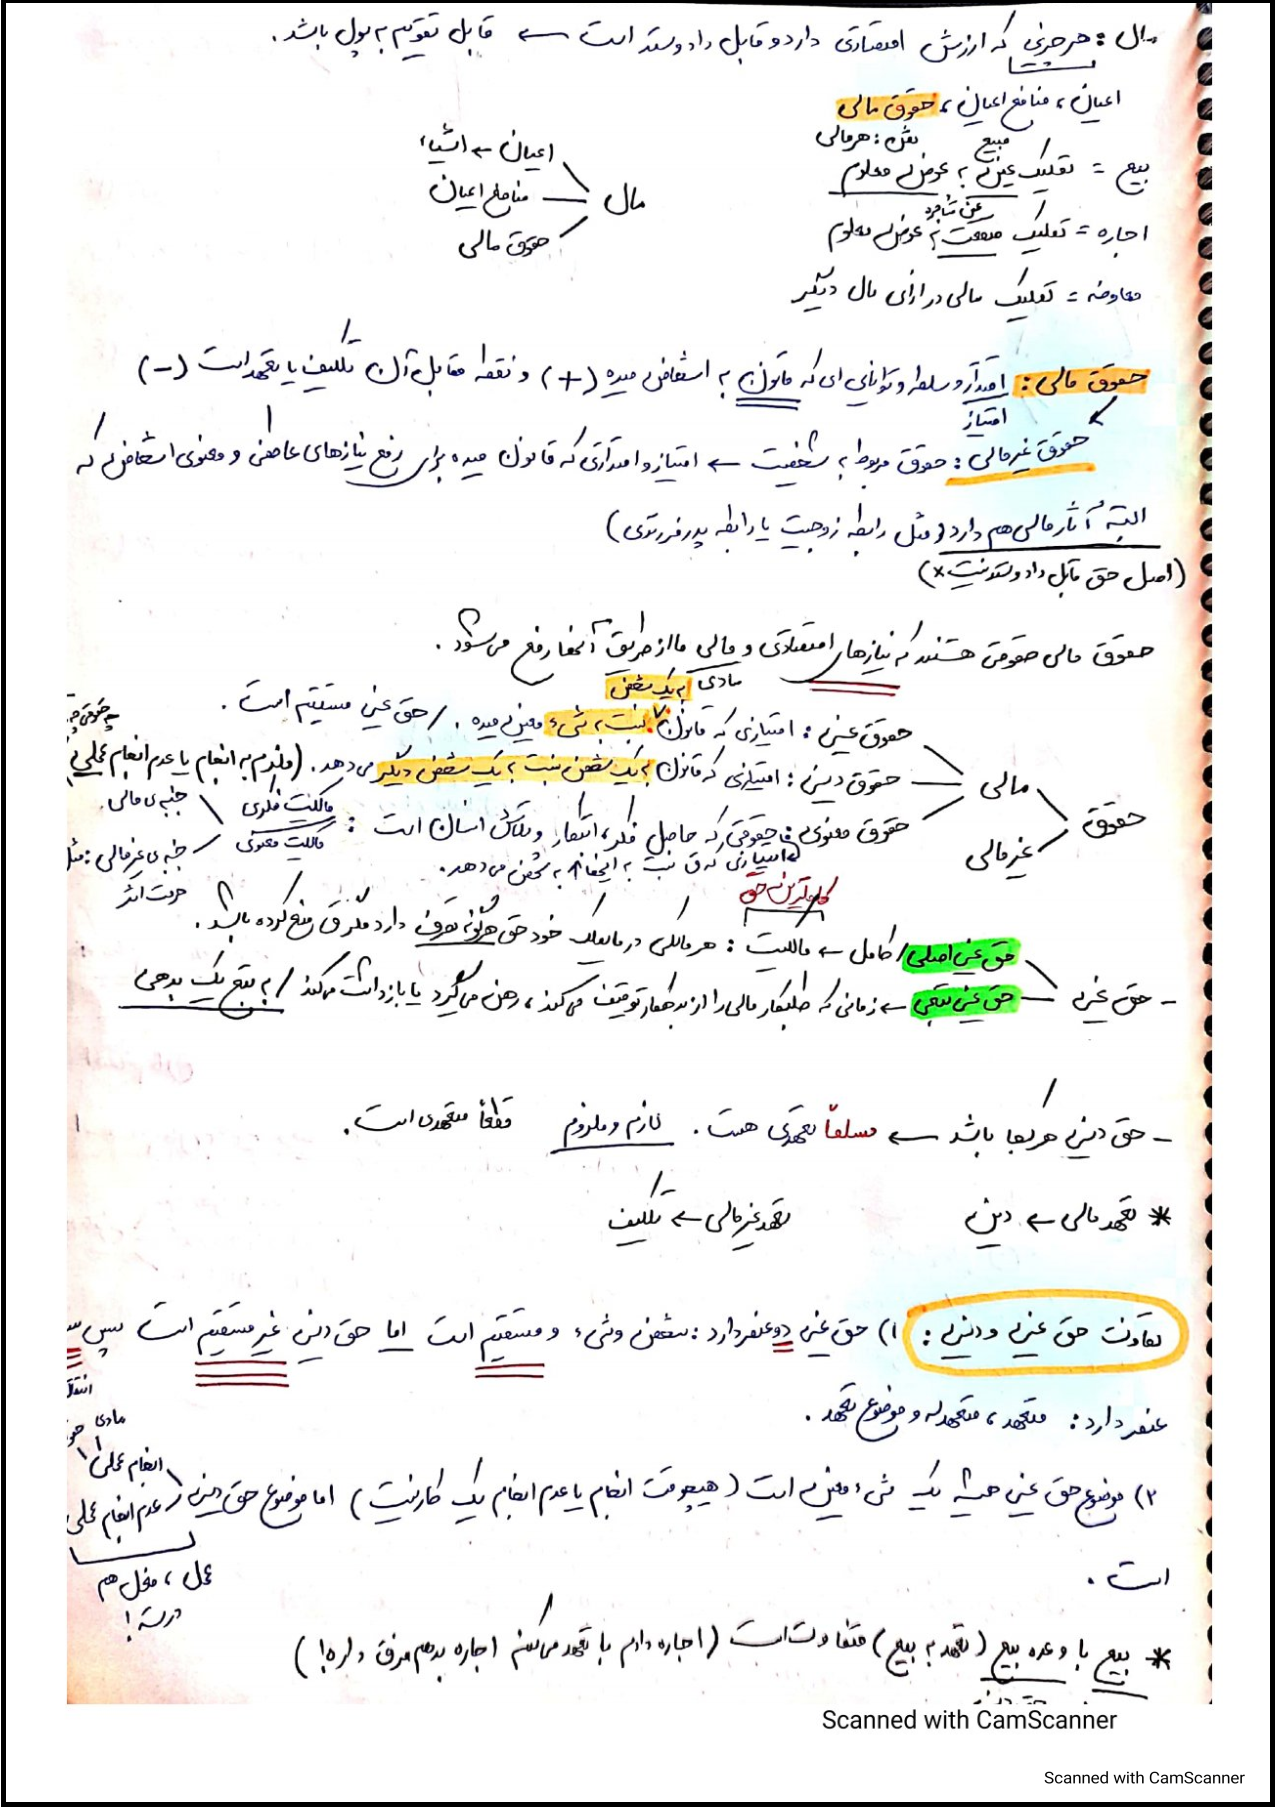 مال : هرچیزی که ارزش اقتصادی دارد و قابل داد و ستد است ← قابل تقویم به پول باشد .
اعیان ، منافع اعیان ، حقوق مالی
مبیع
ثمن : هرمالی
بیع = تملیک عین به عوض معلوم
عین مستأجره
اجاره = تملیک منفعت به عوض معلوم
معاوضه = تملیک مالی در ازای مال دیگر
مال
اعیان ← اشیاء
منافع اعیان
حقوق مالی
حقوق مالی : اقتدار و سلطه و توانایی ای که قانون به اشخاص میده (+) و نقطه مقابل آن تکلیف یا تعهد است (-)
امتیاز
حقوق غیرمالی : حقوق مربوط به شخصیت ← امتیاز و اقتداری که قانون میده برای رفع نیازهای عاطفی و معنوی اشخاص که
البته آثار مالی هم دارد (مثل رابطه زوجیت یا رابطه پدر فرزندی)
(اصل حق قابل داد و ستد نیست *)
حقوق مالی حقوقی هستند که نیازهای اقتصادی و مالی ما از طریق آنها رفع می‌شود .
مادی
به یک شخص
حقوق
مالی
غیرمالی
حقوق عینی : امتیازی که قانون نسبت به شیء معین میده . / حق عینی مستقیم است .
حقوق دینی : امتیازی که قانون به یک شخص نسبت به یک شخص دیگر می‌دهد . (ملزم به انجام یا عدم انجام عملی
حقوق معنوی : حقوقی که حاصل فکر ، ابتکار و تلاش انسان است :
امتیازی که ق نسبت به اینها به شخص می‌دهد .
مالکیت فکری
مالکیت معنوی
جنبه‌ی مالی .
جنبه‌ی غیرمالی : مثل
حرمت اثر
کاملترین حق
- حق عینی
حق عینی اصلی / کامل ← مالکیت : هر مالکی در مایملک خود حق هرگونه تصرف دارد مگر ق منع کرده باشد .
حق عینی تبعی ← زمانی که طلبکار مالی را از بدهکار توقیف می‌کند ، رهن می‌گیرد یا بازداشت می‌کند / به تبع یک بدهی
- حق دینی هرکجا باشد ← مسلماً تعهدی هست . لازم و ملزوم قطعاً متعهدی است .
* تعهد مالی ← دین تعهد غیرمالی ← تکلیف
تفاوت حق عینی و دینی : ۱) حق عینی دو عنصر دارد : شخص و شیء و مستقیم است اما حق دینی غیر مستقیم است پس
عنصر دارد : متعهد ، متعهدله و موضوع تعهد .
مادی
انجام عملی
عدم انجام عملی
۲) موضوع حق عینی همیشه یک شیء معین است (هیچوقت انجام یا عدم انجام یک کار نیست) اما موضوع حق دینی
است .
عمل ، فعل هم
درسته !
* بیع با وعده بیع (تعهد به بیع) متفاوت است (اجاره دادم با تعهد می‌کنم اجاره بدهم فرق داره !)
Scanned with CamScanner
Scanned with CamScanner